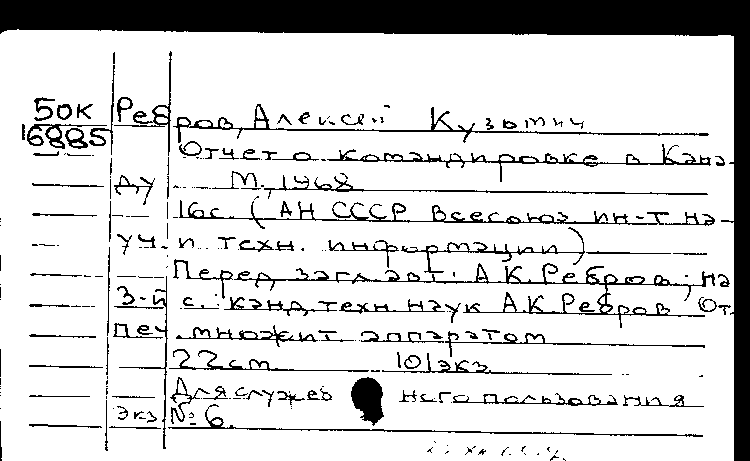 50к Ребров, Алексей Кузьмич
16885
Отчет о командировке в Кана-
ду М., 1968
16с. (АН СССР Всесоюз. ин-т на-
уч. и техн. информации)
Перед загл. авт.: А.К. Ребров; на
3-й с.: канд. техн. наук А.К. Ребров От-
печ. множит. аппаратом
22см 101экз
Для служебного пользования
экз. №6.